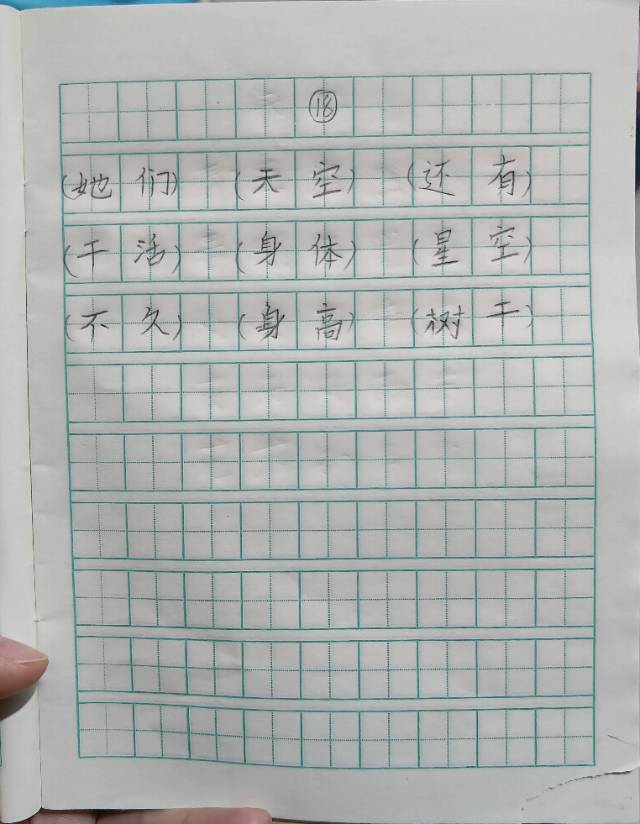 ⑱
(她们) (天空) (还有)
(干活) (身体) (星空)
(不久) (身高) (树干)